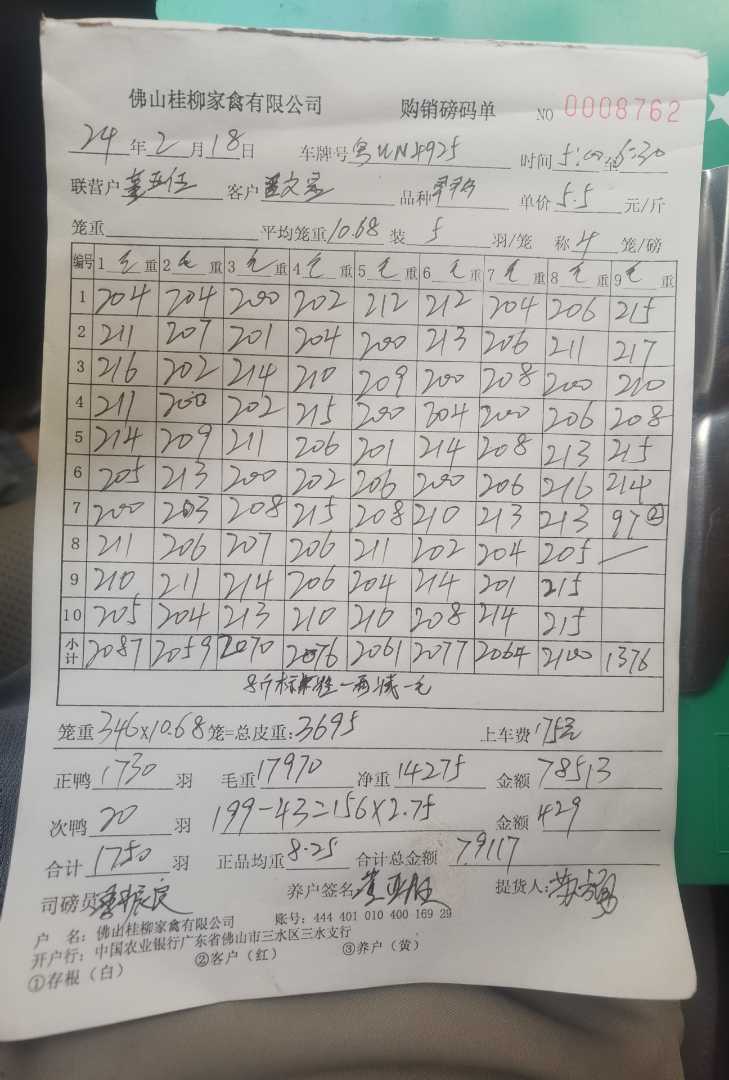 佛山桂柳家禽有限公司 购销磅码单 NO 0008762
24年2月18日 车牌号粤UN4925 时间5:00至6:30
联营户 客户 品种 单价5.5元/斤
笼重 平均笼重10.68 装5羽/笼 称4笼/磅
编号 1毛重 2毛重 3毛重 4毛重 5毛重 6毛重 7毛重 8毛重 9毛重
1 204 204 200 202 212 212 204 206 215
2 211 207 201 204 200 213 206 211 217
3 216 202 214 210 209 200 208 200 210
4 211 200 202 215 200 204 200 206 208
5 214 209 211 206 201 214 208 213 215
6 205 213 200 202 206 200 206 216 214
7 200 203 208 215 208 210 213 213 97②
8 211 206 207 206 211 202 204 205 —
9 210 211 214 206 204 214 201 215
10 205 204 213 210 210 208 214 215
小计 2087 2059 2070 2076 2061 2077 2064 2100 1376
8斤标准 一两 一毛
笼重346×10.68笼=总皮重:3695 上车费175元
正鸭1730羽 毛重17970 净重14275 金额78513
次鸭20羽 199-43=156×2.75 金额429
合计1750羽 正品均重8.25 合计总金额79117
司磅员 养户签名 提货人:
户 名: 佛山桂柳家禽有限公司 账号: 444 401 010 400 169 29
开户行: 中国农业银行广东省佛山市三水区三水支行
①存根（白） ②客户（红） ③养户（黄）